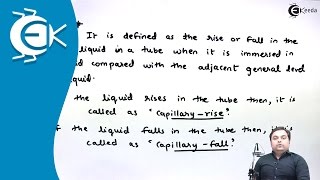 Ekeeda
It is defined as the rise or fall in the
liquid in a tube when it is immersed in
compared with the adjacent general level
the liquid rises in the tube then, it is
called as "Capillary-rise".
the liquid falls in the tube then, it is
called as "Capillary-fall".